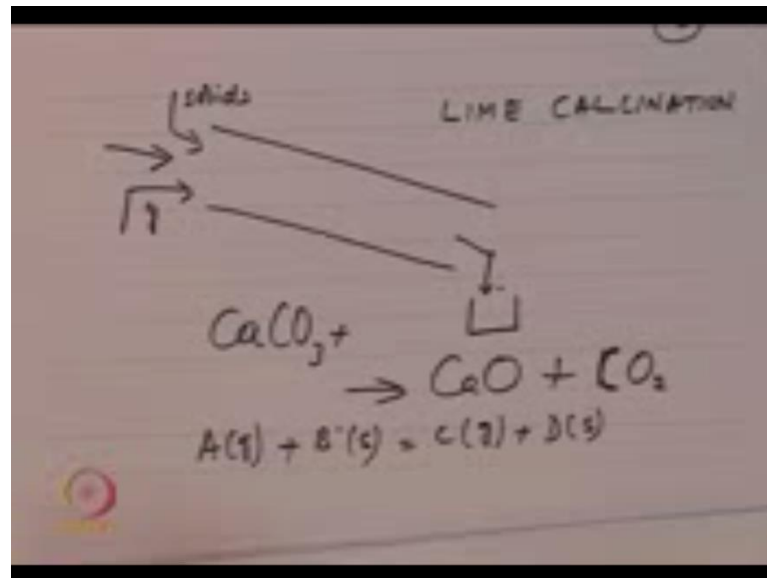 solids
LIME CALCINATION
g
CaCO₃ +
→ CaO + CO₂
A(g) + B(s) = C(g) + D(s)